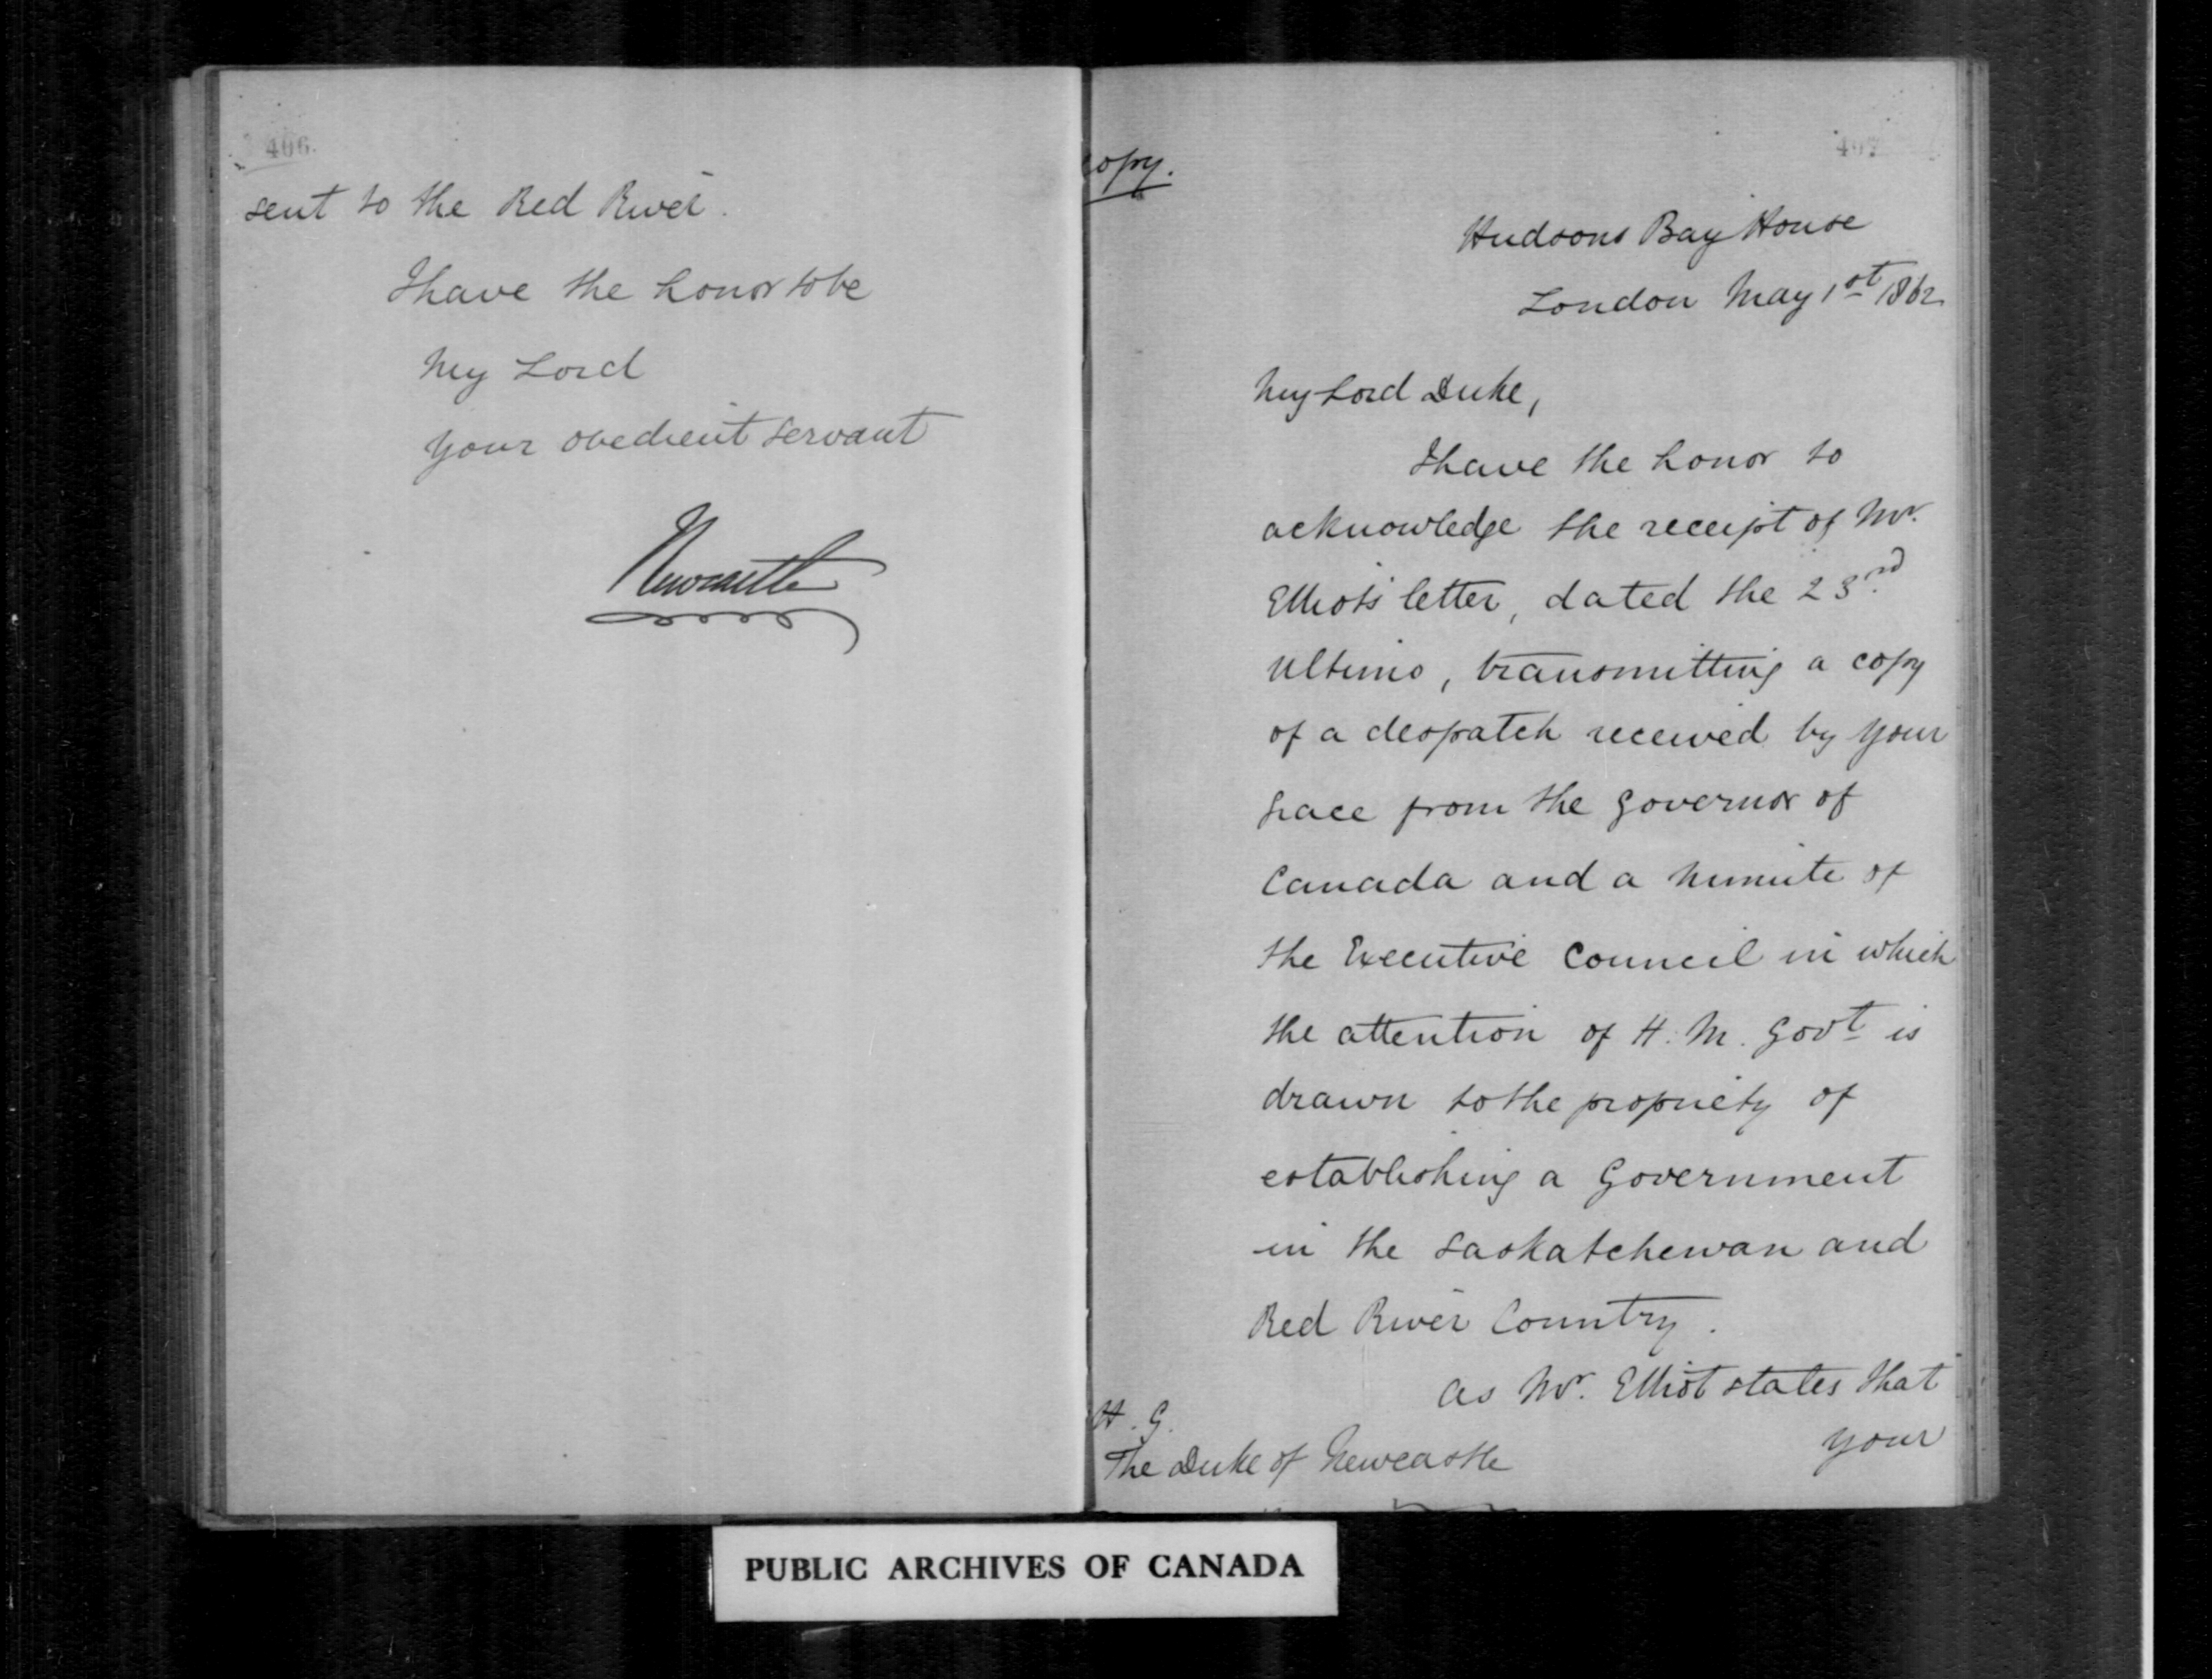 406.
sent to the Red River.
I have the honor to be
My Lord
your obedient servant
Newcastle
407
Copy.
Hudsons Bay House
London May 1st 1862
My Lord Duke,
I have the honor to
acknowledge the receipt of Mr.
Elliots letter, dated the 23rd.
Ultimo, transmitting a copy
of a despatch received by your
Grace from the Governor of
Canada and a minute of
the Executive Council in which
the attention of H. M. Govt is
drawn to the propriety of
establishing a Government
in the Saskatchewan and
Red River Country.
As Mr. Elliot states that
your
H. G.
The Duke of Newcastle
PUBLIC ARCHIVES OF CANADA